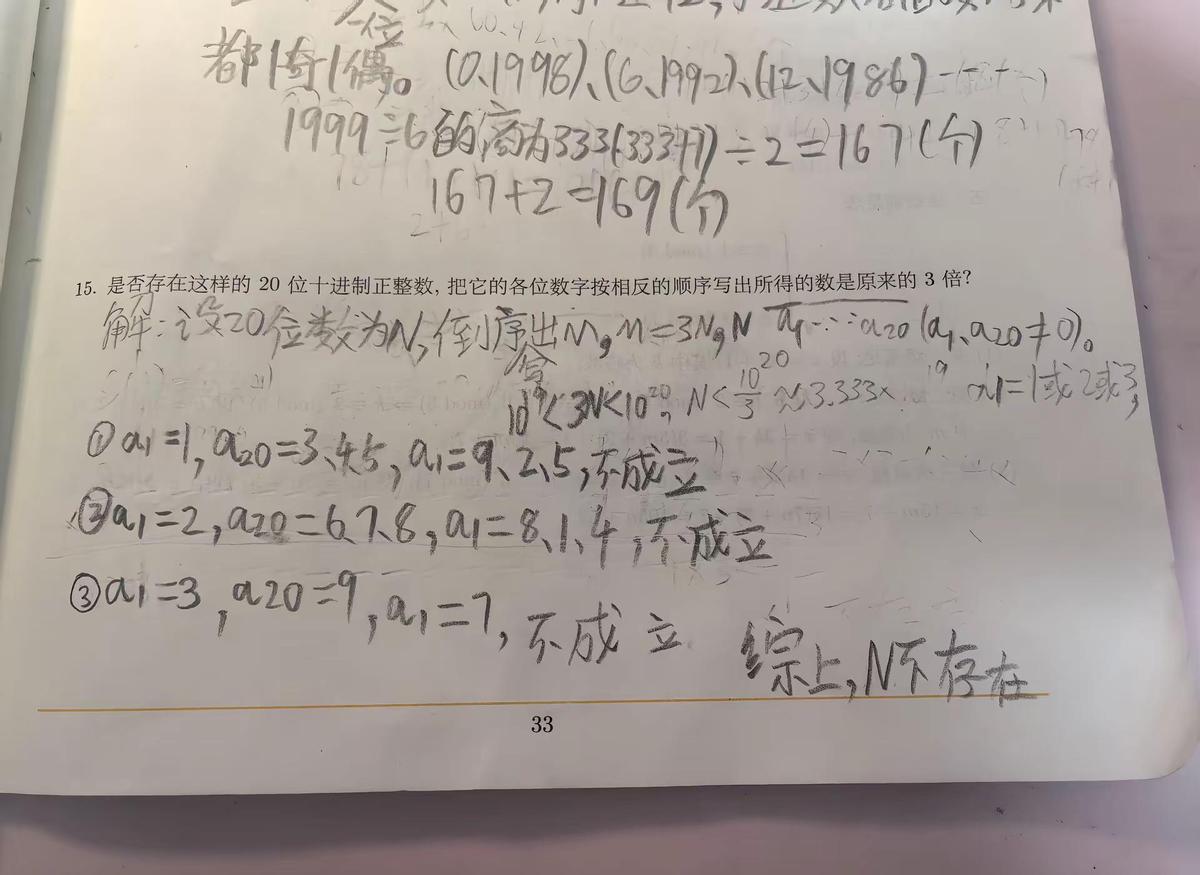 一位
都1奇1偶。(0、1998)、(6、1992)、(12、1986)---
1999÷6的商为333(333+1)÷2=167(个)
167+2=169(个)
15. 是否存在这样的 20 位十进制正整数, 把它的各位数字按相反的顺序写出所得的数是原来的 3 倍?
解:设20位数为N,倒序出M,M=3N,N a1…a20(a1、a20≠0)。
10^19<3N<10^20, N<10^20/3≈3.333×10^19 a1=1或2或3,
①a1=1,a20=3、4、5,a1=9、2、5,不成立
②a1=2,a20=6、7、8,a1=8、1、4,不成立
③a1=3,a20=9,a1=7,不成立 综上,N不存在
33